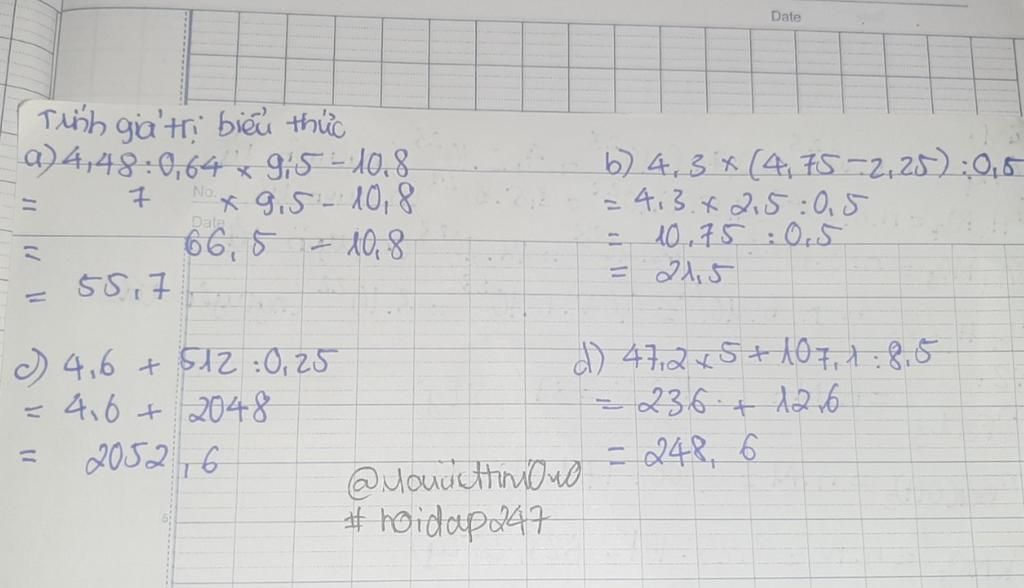 Date
Tính giá trị biểu thức
a) 4,48 : 0,64 × 9,5 - 10,8
= 7 × 9,5 - 10,8
No.
Date
= 66,5 - 10,8
= 55,7
b) 4,3 × (4,75 - 2,25) : 0,5
= 4,3 × 2,5 : 0,5
= 10,75 : 0,5
= 21,5
c) 4,6 + 512 : 0,25
= 4,6 + 2048
= 2052,6
d) 47,2 × 5 + 107,1 : 8,5
= 236 + 12,6
= 248,6
# hoidap247